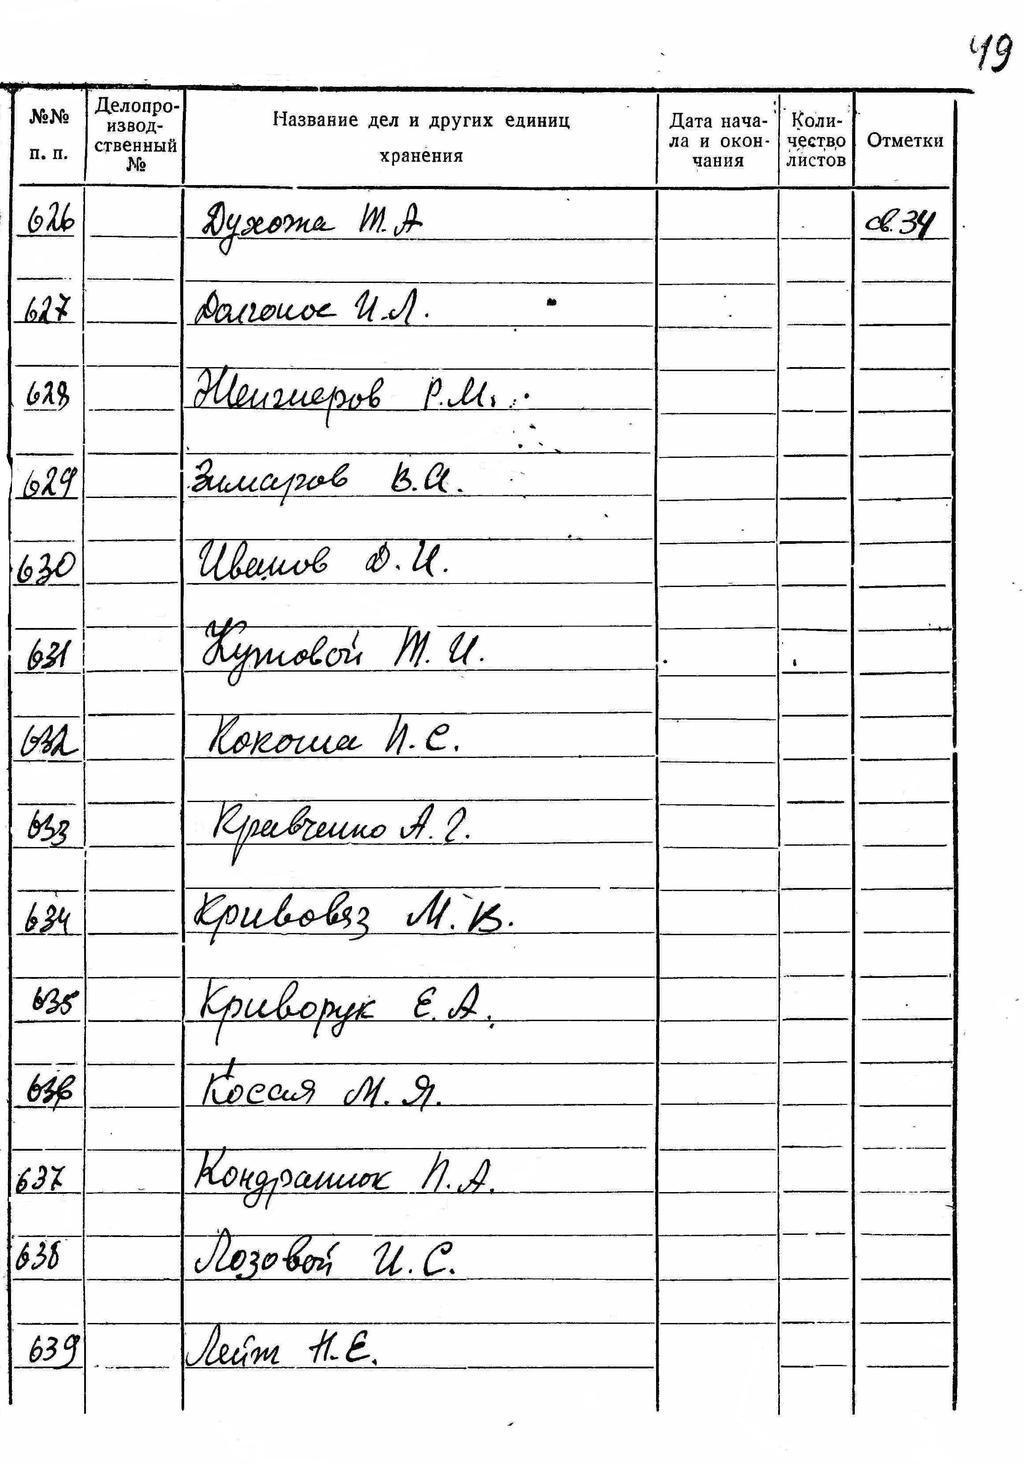 49
№№ п. п. Делопро-изводственный № Название дел и других единиц хранения Дата нача-ла и окон-чания Коли-чество листов Отметки
626 Духота Т. А св. 34
627 Долгонос И. Л.
628 Р. М.
629 Зимаров В. И.
630 Иванов Д. И.
631 Кутовой Т. И.
632 Кокоша П. С.
633 Кравченко А. Г.
634 Кривовяз М. В.
635 Криворук Е. А.
636 М. Я.
637 Кондратюк П. А.
638 Лозовой И. С.
639 Лейт Н. Е.